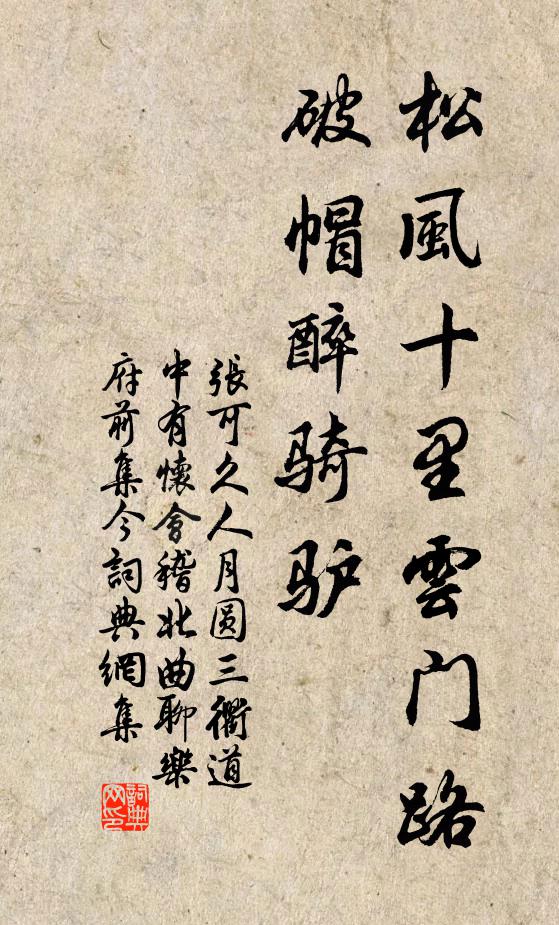 松風十里雲门路
破帽醉骑驴
張可久人月圆三衢道
中有懷會稽北曲聊樂
府前集今詞典網集
詞典網印